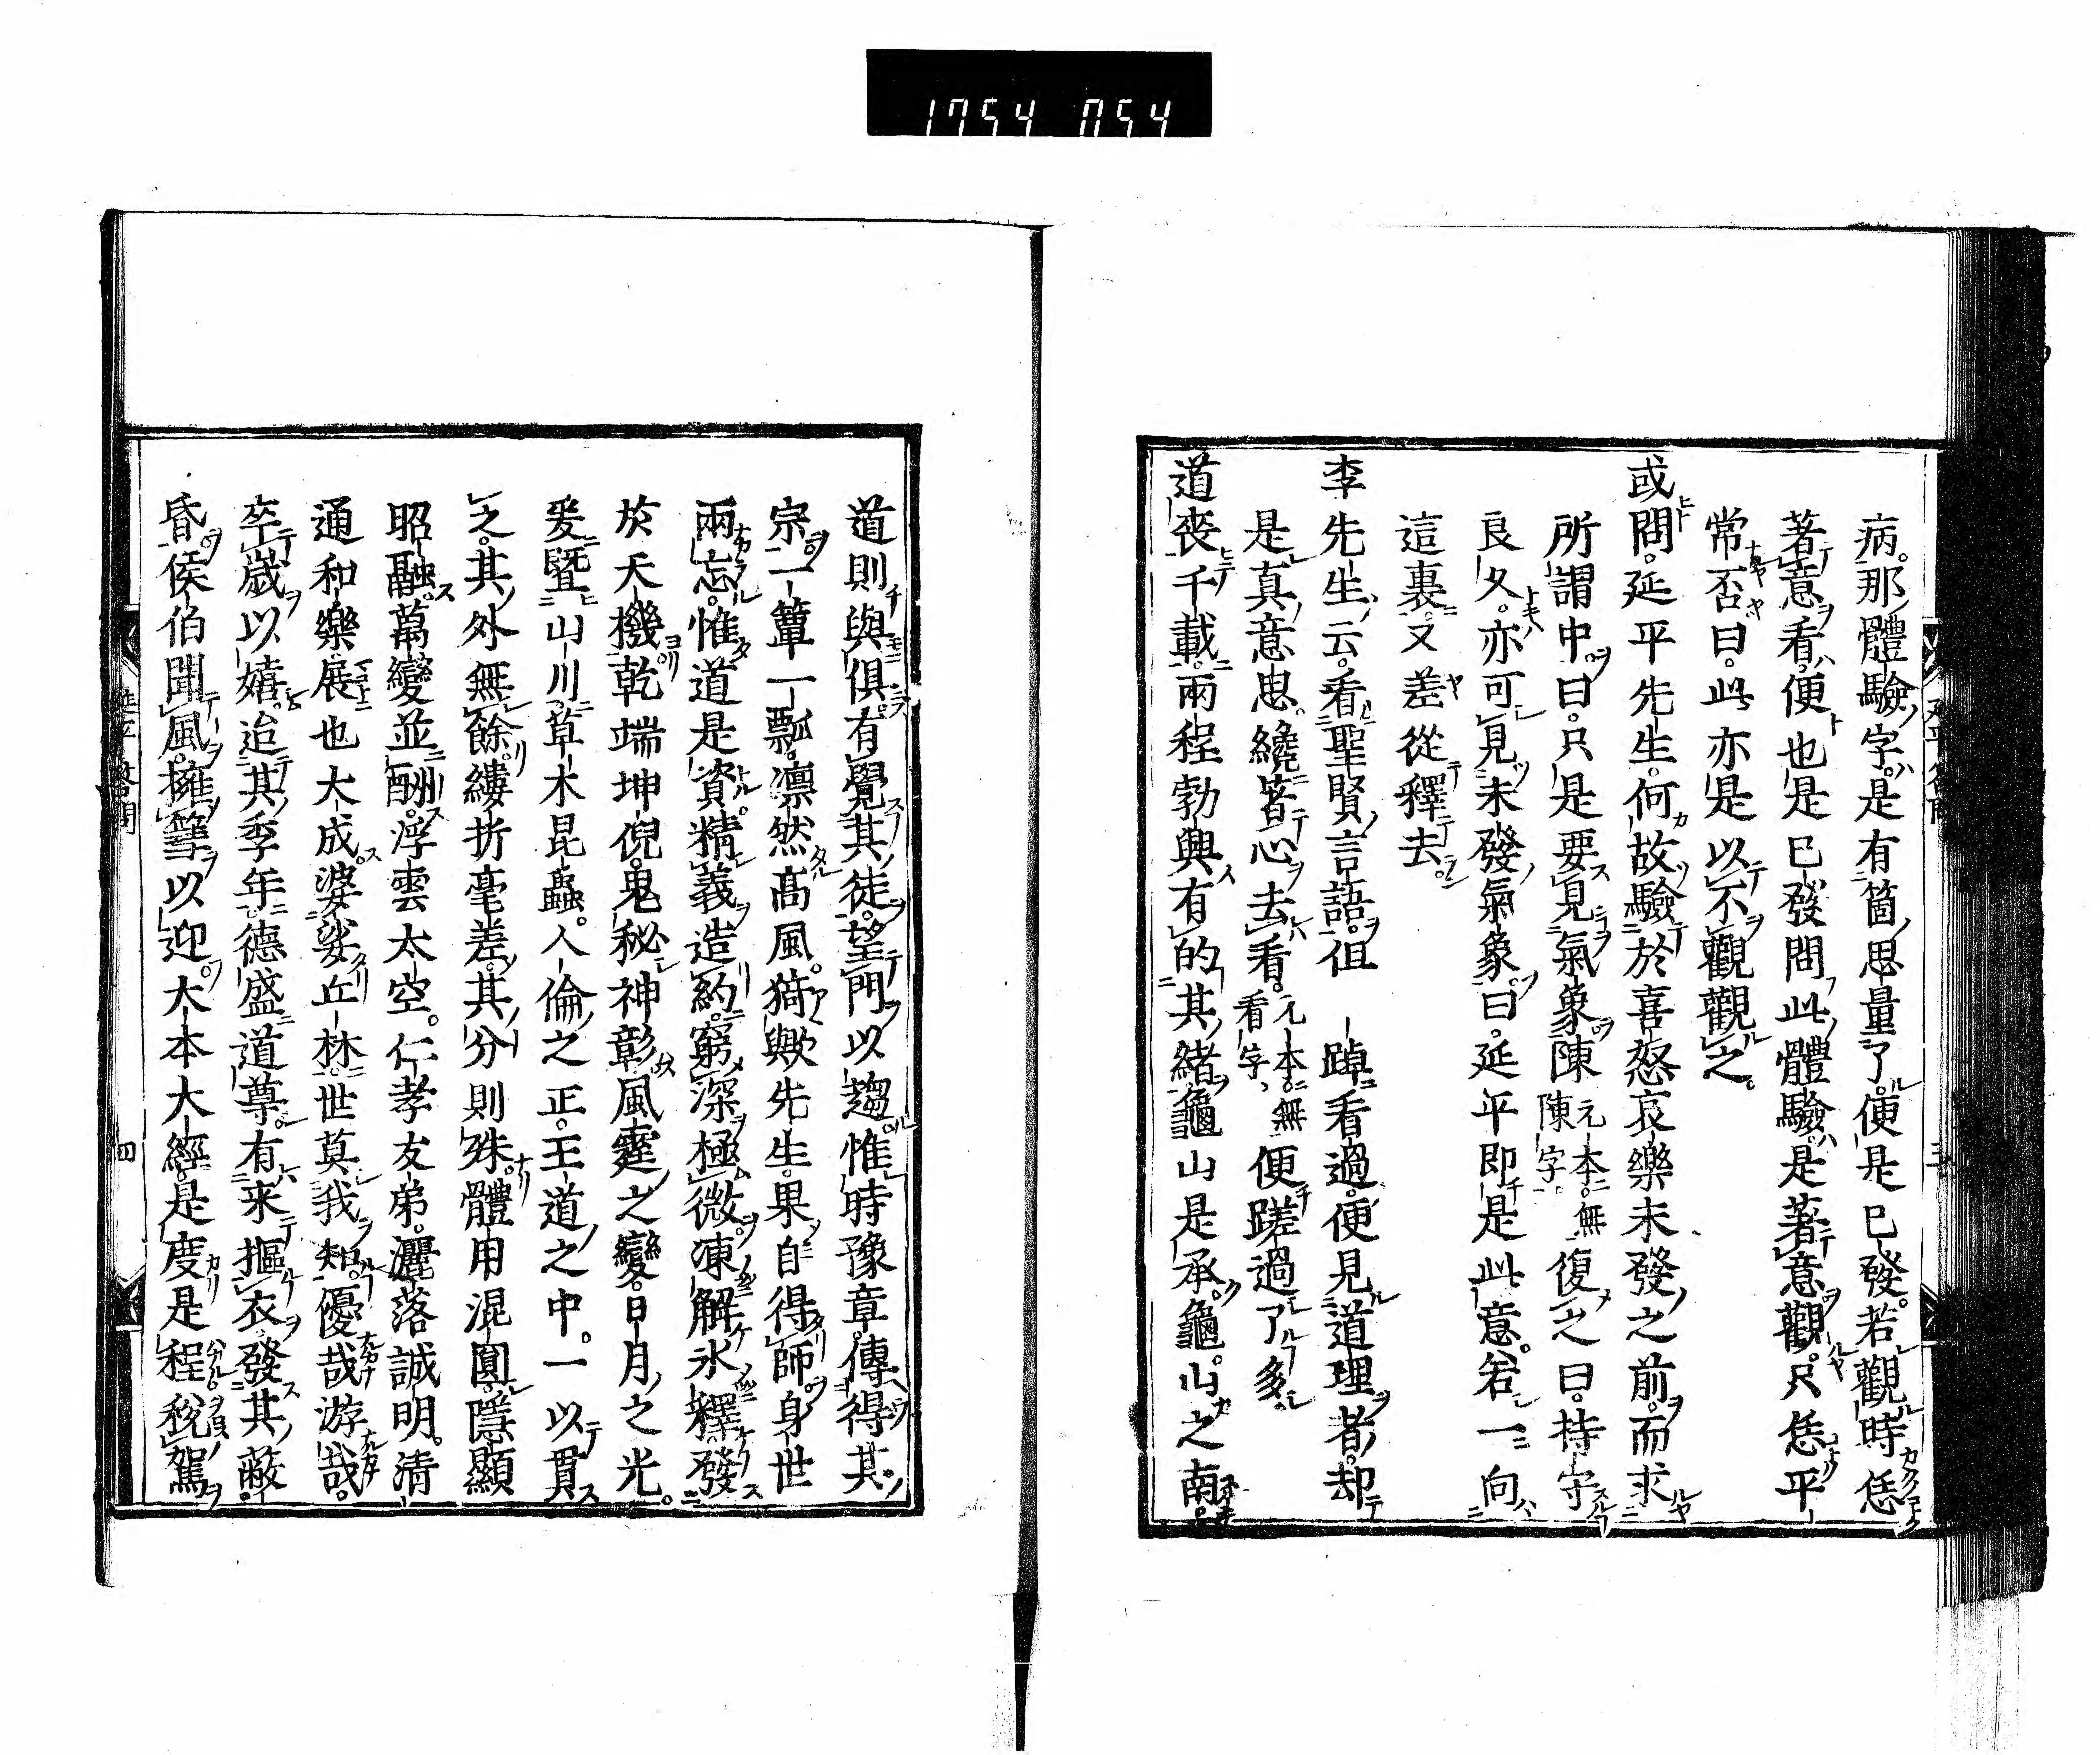 1754 0154
病。那體驗字。是有箇思量了。便是已發。若觀時恁
著意看。便也是已發問此體驗。是著意觀。只恁平
常否曰。此亦是以不觀觀之。
或問。延平先生。何故驗於喜怒哀樂未發之前。而求
所謂中。曰。只是要見氣象。陳元本無陳字復之曰。持守
良久。亦可見未發氣象。曰。延平即是此意。若一向
這裏又差從釋去。
李先生云。看聖賢言語。但一踔看過。便見道理者。却
是真意思。纔著心去看。元本無看字便蹉過了多。
道喪千載。兩程勃興有的其緒龜山是承。龜山之南
道則與俱。有覺其徒。望門以趨惟時豫章。傳得其
宗。一簞一瓢。凛然高風。猗歟先生。果自得師身世
兩忘。惟道是資精義造約。窮深極微。凍解氷釋發
於天機乾端坤倪。鬼秘神彰風霆之變。日月之光。
爰暨山川草木昆蟲。人倫之正。王道之中。一以貫
之。其外無餘縷折毫差。其分則殊。體用混圓。隱顯
昭融。萬變並酬。浮雲太空。仁孝友弟。灑落誠明。清
通和樂展也大成。婆娑丘林。世莫我知。優哉游哉。
卒歲以嬉。迨其季年德盛道尊。有来摳衣發其蔽
昏。侯伯聞風。擁篲以迎。大本大經。是度是程稅駕
延平答問
三
延平答問
四